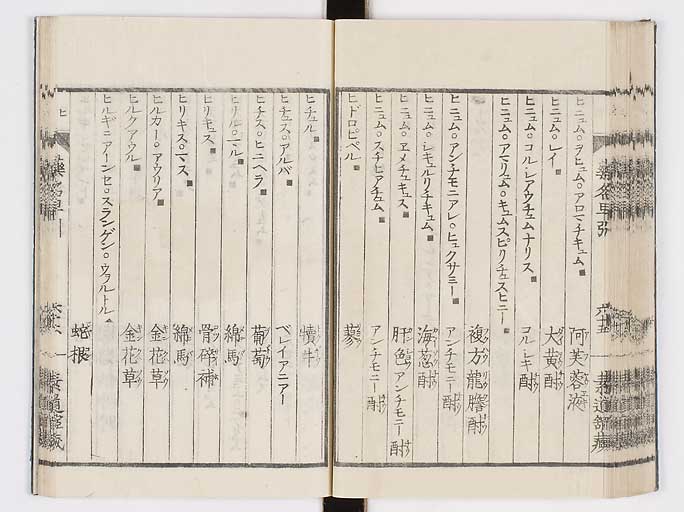 ヒニュム。ヲヒュム。アロマチキュム 阿芙蓉液
ヒニュム。レイ 大黄酎
ヒニュム。コル。レアウチュムナリス
ヒニュム。アマリュム。キュムスピリチュスヒニー コルレキ酎
複方龍膽酎
ヒニュム。アンチモニアレ。ヒュクサミー アンチモニー酎
ヒニュム。レキュルリチキュム 海葱酎
ヒニュム。ヱメチュキュス 肝色アンチモニー酎
ヒニュム。スチヒアチュム アンチモニー酎
ヒドロピペル 蓼
ヒチュル 犢牛
ヒチュス。アルバ ベレイアニアー
ヒチス。ヒニヘラ 葡萄
ヒリル。マル 綿馬
ヒリキュス 骨砕補
ヒリキス。マス 綿馬
ヒルカー。アウリア 金花草
ヒルクアウル 金花草
ヒルギニアーンセ。スランゲン。ウヲルトル
蛇根